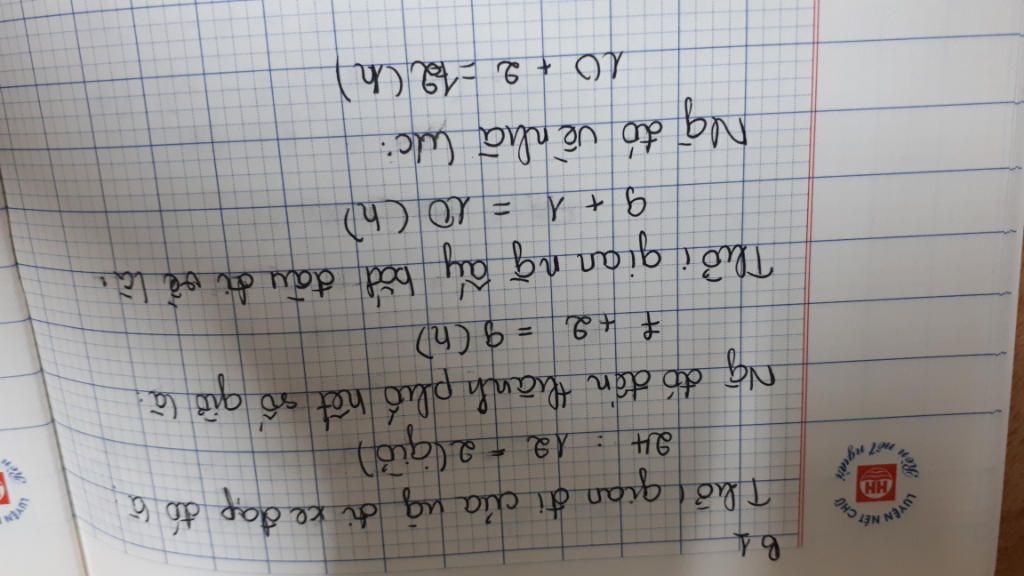 B1
Thời gian đi của ng đi xe đạp đó là
24 : 12 = 2 (giờ)
Ng đó đến thành phố hết số giờ là:
7 + 2 = 9 (h)
Thời gian ng ấy bắt đầu đi về là:
9 + 1 = 10 (h)
Ng đó về nhà lúc:
10 + 2 = 12 (h)
LUYỆN NÉT CHỮ
HH
Rèn nết người
LUYỆN NÉT CHỮ
Rèn